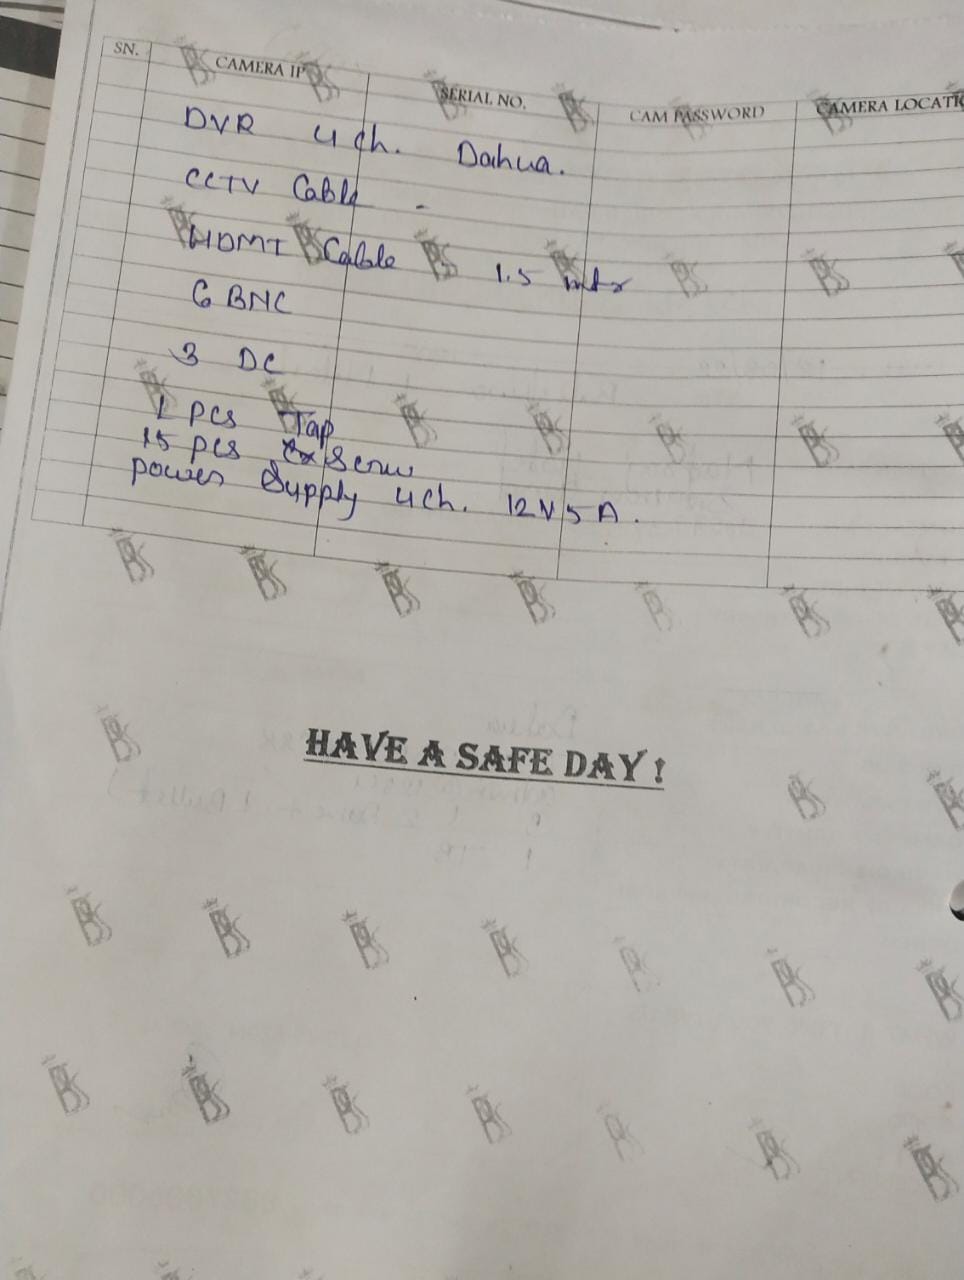 SN. CAMERA IP SERIAL NO. CAM PASSWORD CAMERA LOCATI
DVR 4 ch. Dahua.
CCTV Cable -
HDMI Cable - 1.5 mtr
6 BNC
3 DC
1 pcs Tap
15 pcs Screw
power Supply 4ch. 12V 5 A.
HAVE A SAFE DAY !